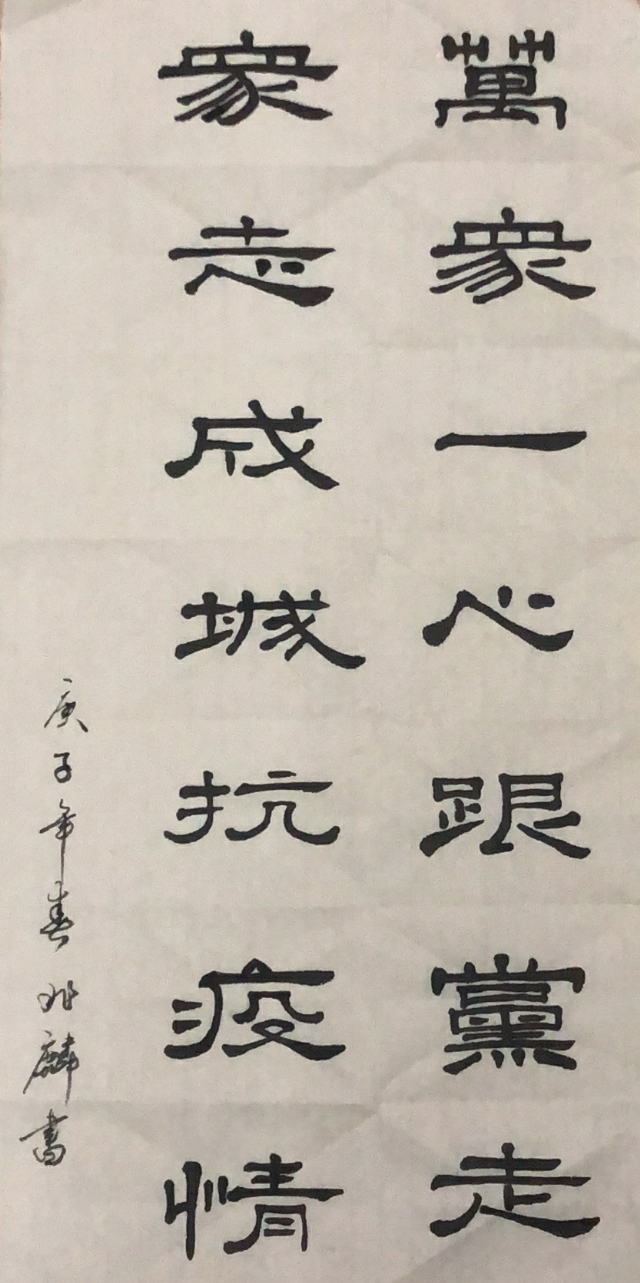 萬衆一心跟黨走
衆志成城抗疫情
庚子年春兆麟書